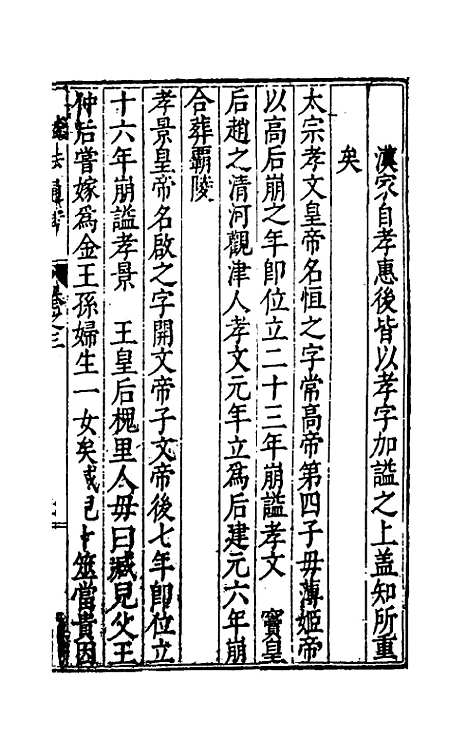 漢家自孝惠後皆以孝字加謚之上盖知所重
矣
太宗孝文皇帝名恒之字常高帝第四子毋薄姬帝
以高后崩之年即位立二十三年崩謚孝文 竇皇
后趙之清河觀津人孝文元年立爲后建元六年崩
合葬覇陵
孝景皇帝名啟之字開文帝子文帝後七年即位立
十六年崩謚孝景 王皇后槐里人毋曰臧兒父王
仲后嘗嫁爲金王孫婦生一女矣臧兒卜筮當貴因
謚法通考 卷之三